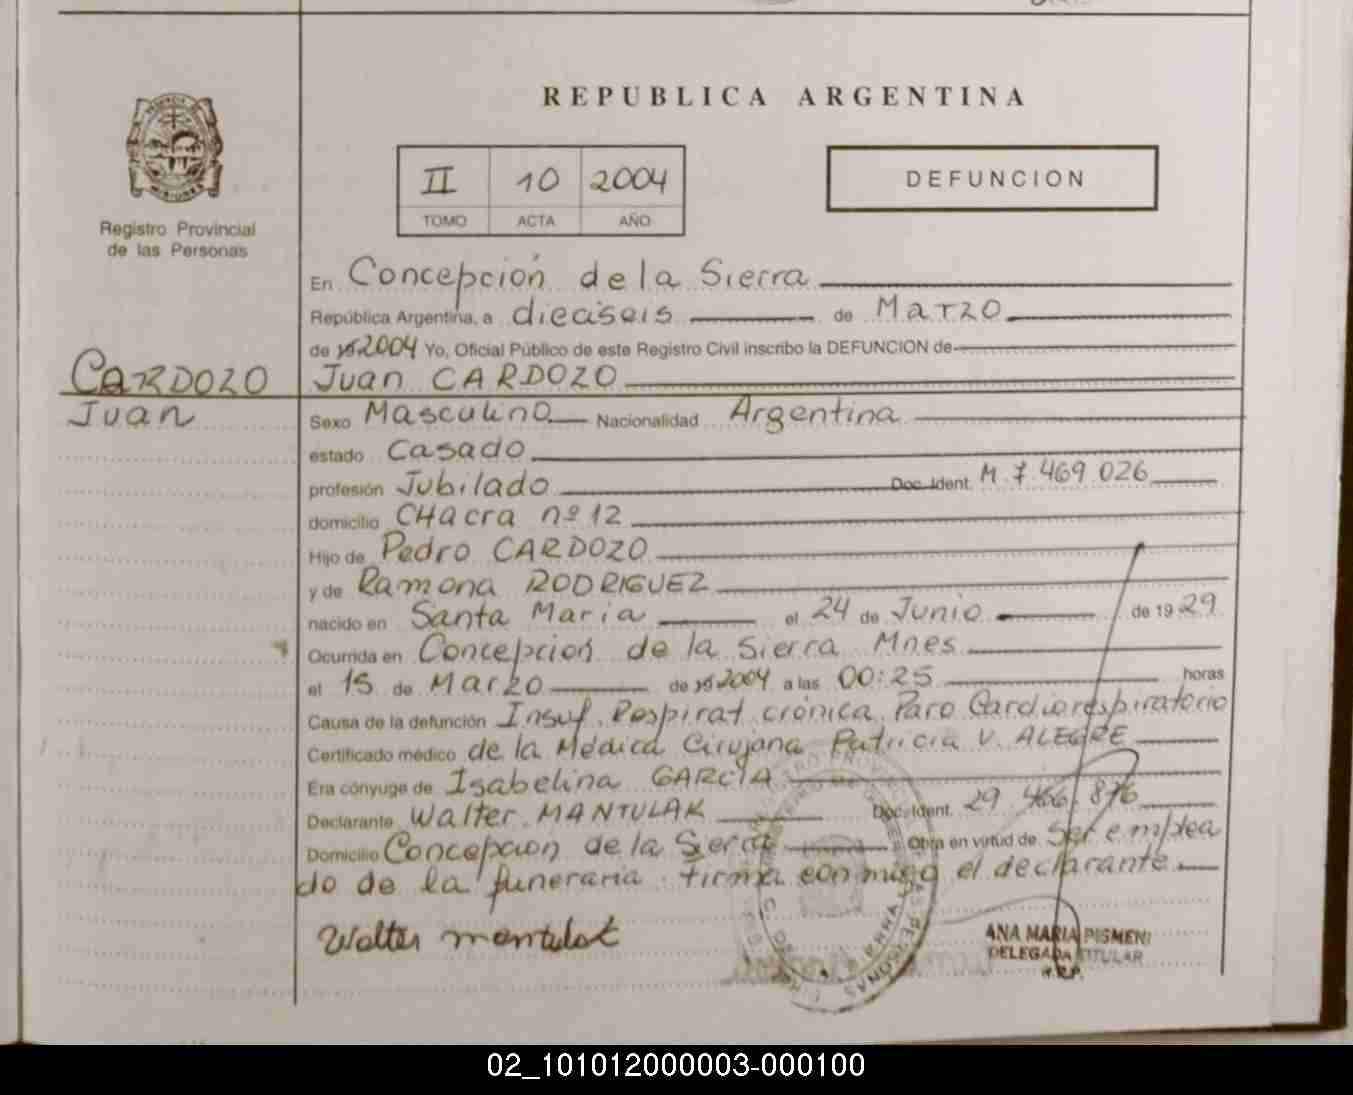 REPUBLICA ARGENTINA
II 10 2004
TOMO ACTA AÑO
DEFUNCION
Registro Provincial
de las Personas
En Concepción de la Sierra
República Argentina, a dieciseis de Marzo
de 2004 Yo, Oficial Público de este Registro Civil inscribo la DEFUNCION de
CARDOZO
Juan
Juan CARDOZO
Sexo Masculino Nacionalidad Argentina
estado Casado
profesión Jubilado Doc. Ident. M. 7.469.026
domicilio CHacra nº 12
Hijo de Pedro CARDOZO
y de Ramona RODRIGUEZ
nacido en Santa María el 24 de Junio de 1929
Ocurrida en Concepción de la Sierra Mnes
el 15 de Marzo de 2004 a las 00:25 horas
Causa de la defunción Insuf. Respirat. crónica, Paro Cardiorespiratorio
Certificado médico de la Médica Cirujana Patricia V. ALEGRE
Era cónyuge de Isabelina GARCIA
Declarante Walter MANTULAK Doc. Ident. 29.466.876
Domicilio Concepcion de la Sierra Obra en virtud de ser emplea
do de la funeraria. firma conmigo el declarante.
Walter mantulak
ANA MARIA PISMENI
DELEGADA TITULAR
R.R.P.
02_101012000003-000100